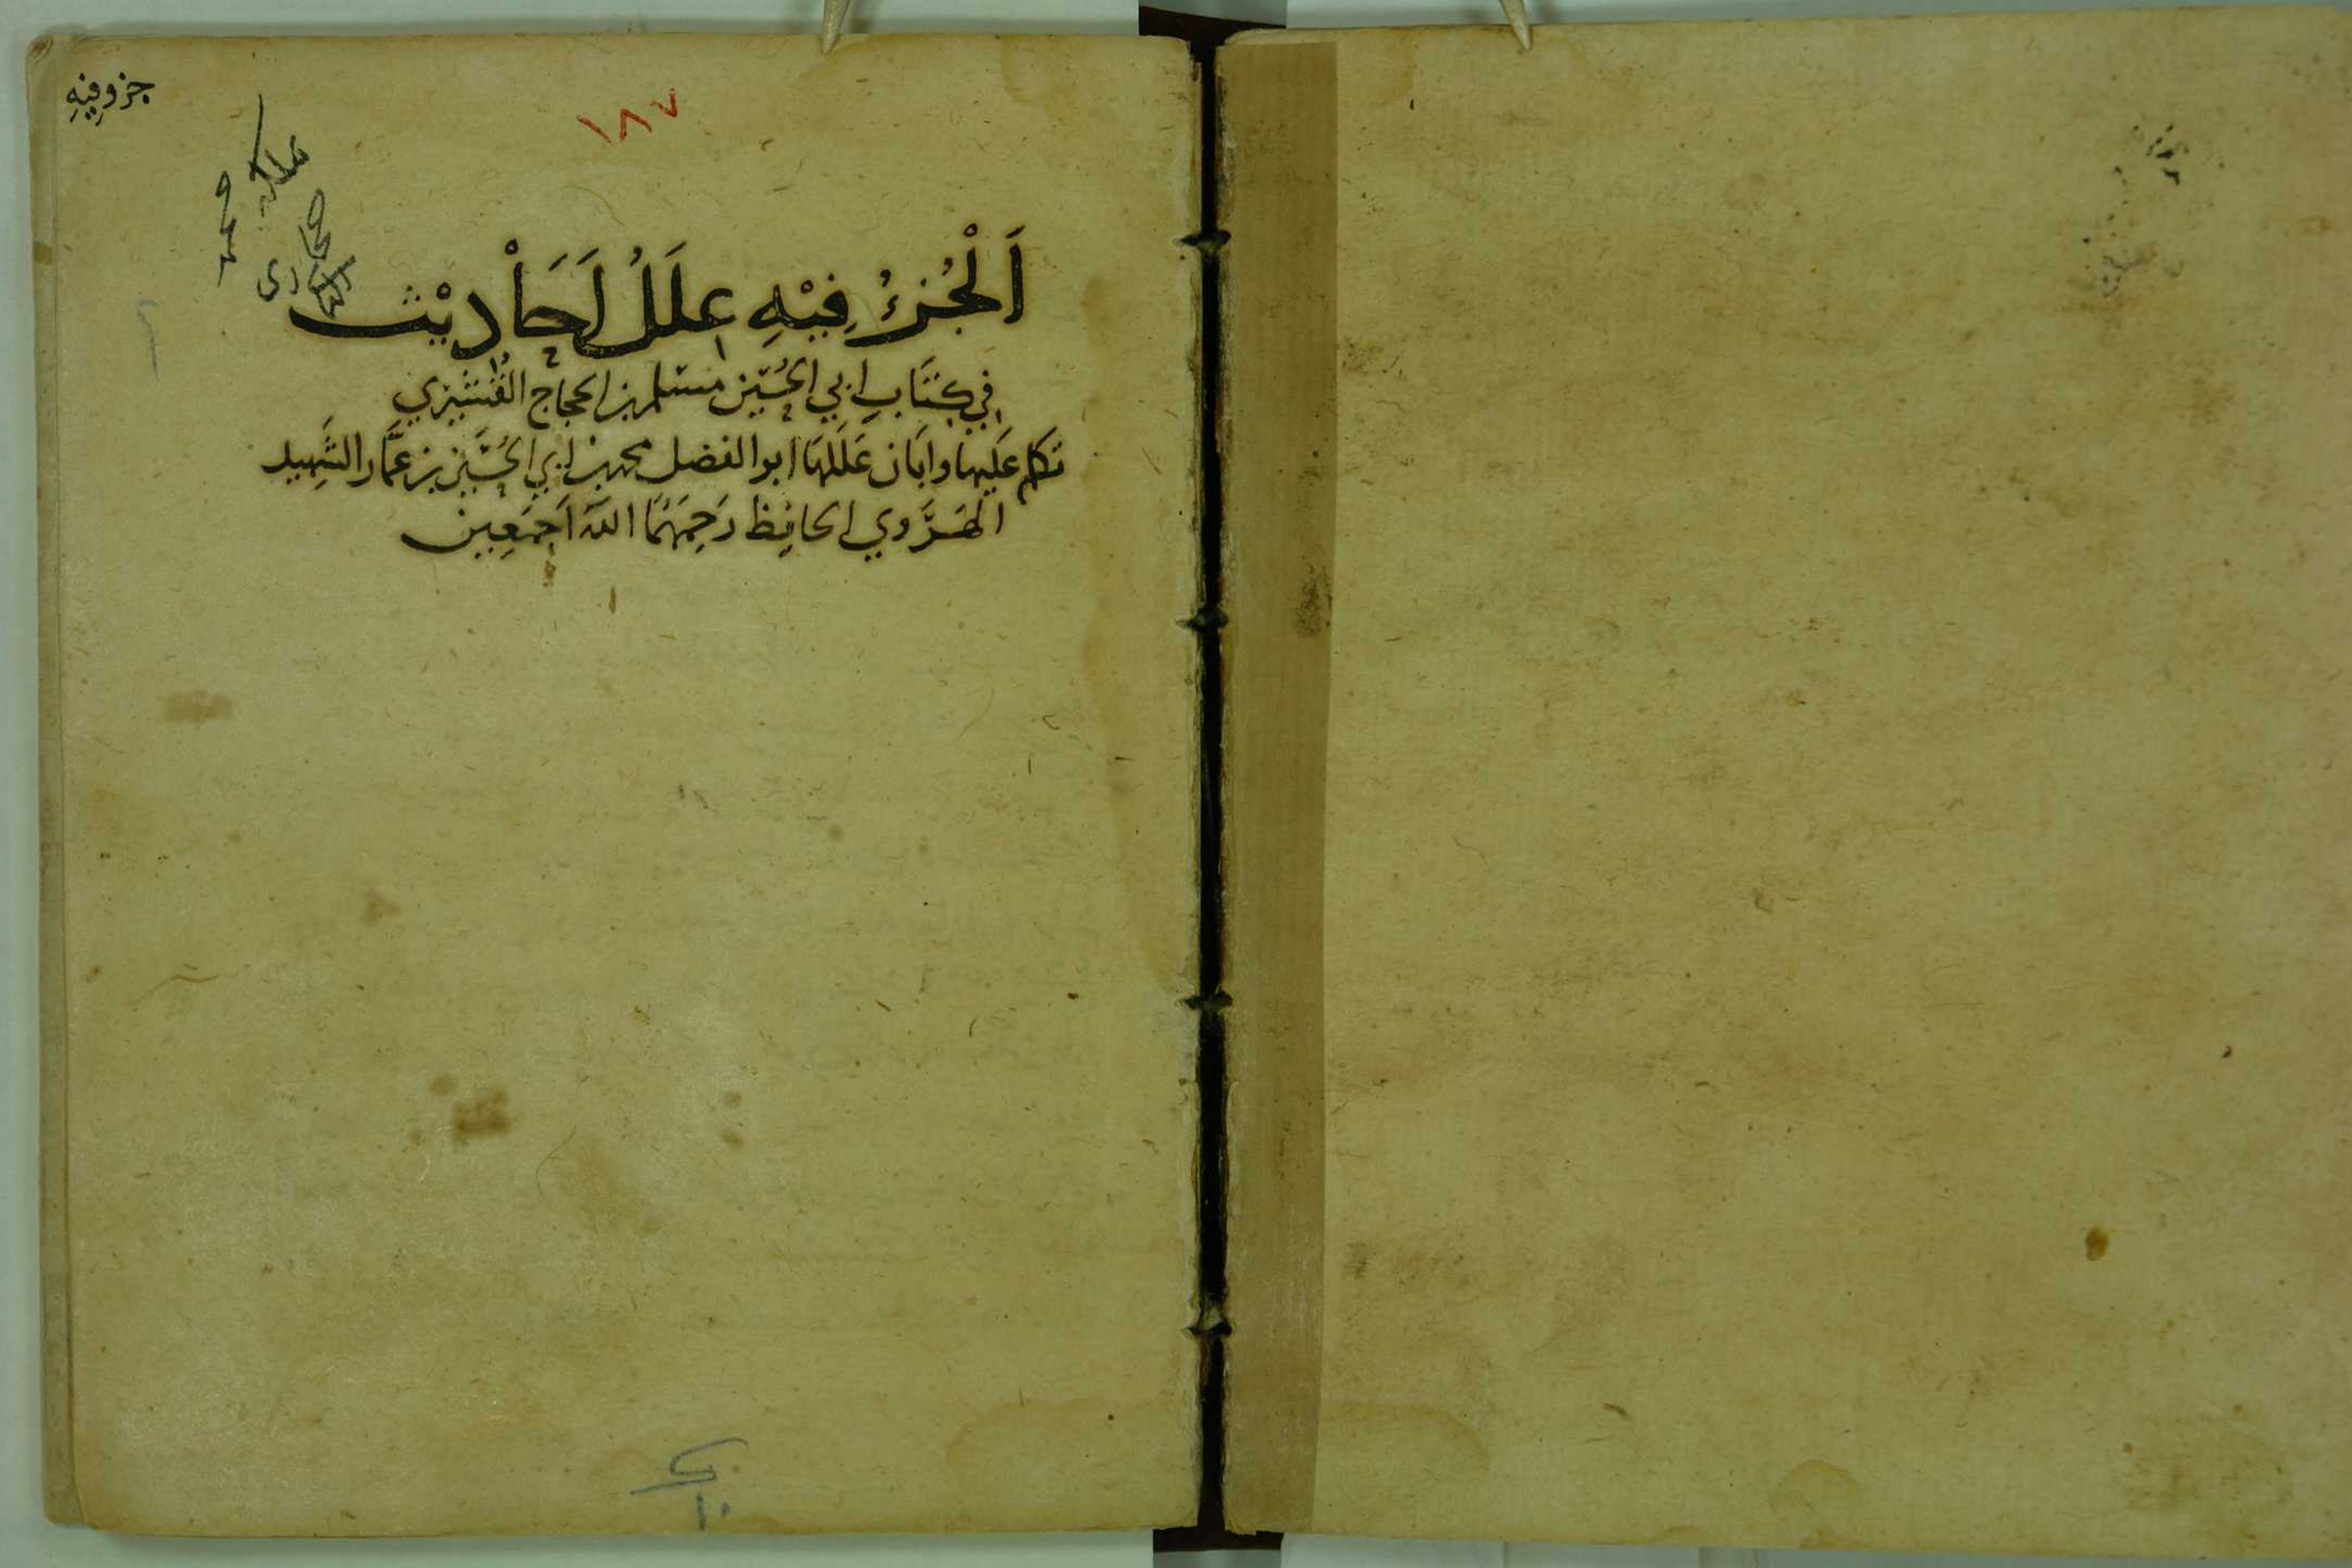 جزو فِيْهِ
١٨٧
محمد
اَلْجُزءُ فِيْهِ عِلَلُ اَحَاْدِيْث
فِي كِتَابِ ابي الحُسَين مسْلم بن الحجاج القُشَيْري
تكلم عَليها وابَان عَلَلهَا ابو الفضل محمد بن ابي الحُسَين بن عمَّار الشَهِيد
الهَرَوي الحافِظ رَحِمَهُمَا اللّٰه اَجمَعِين
١٠